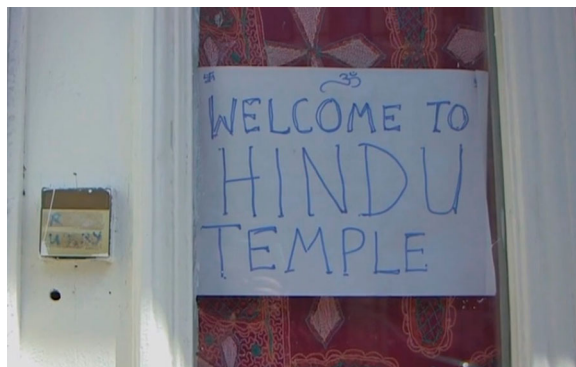 ॐ
WELCOME TO
HINDU
TEMPLE